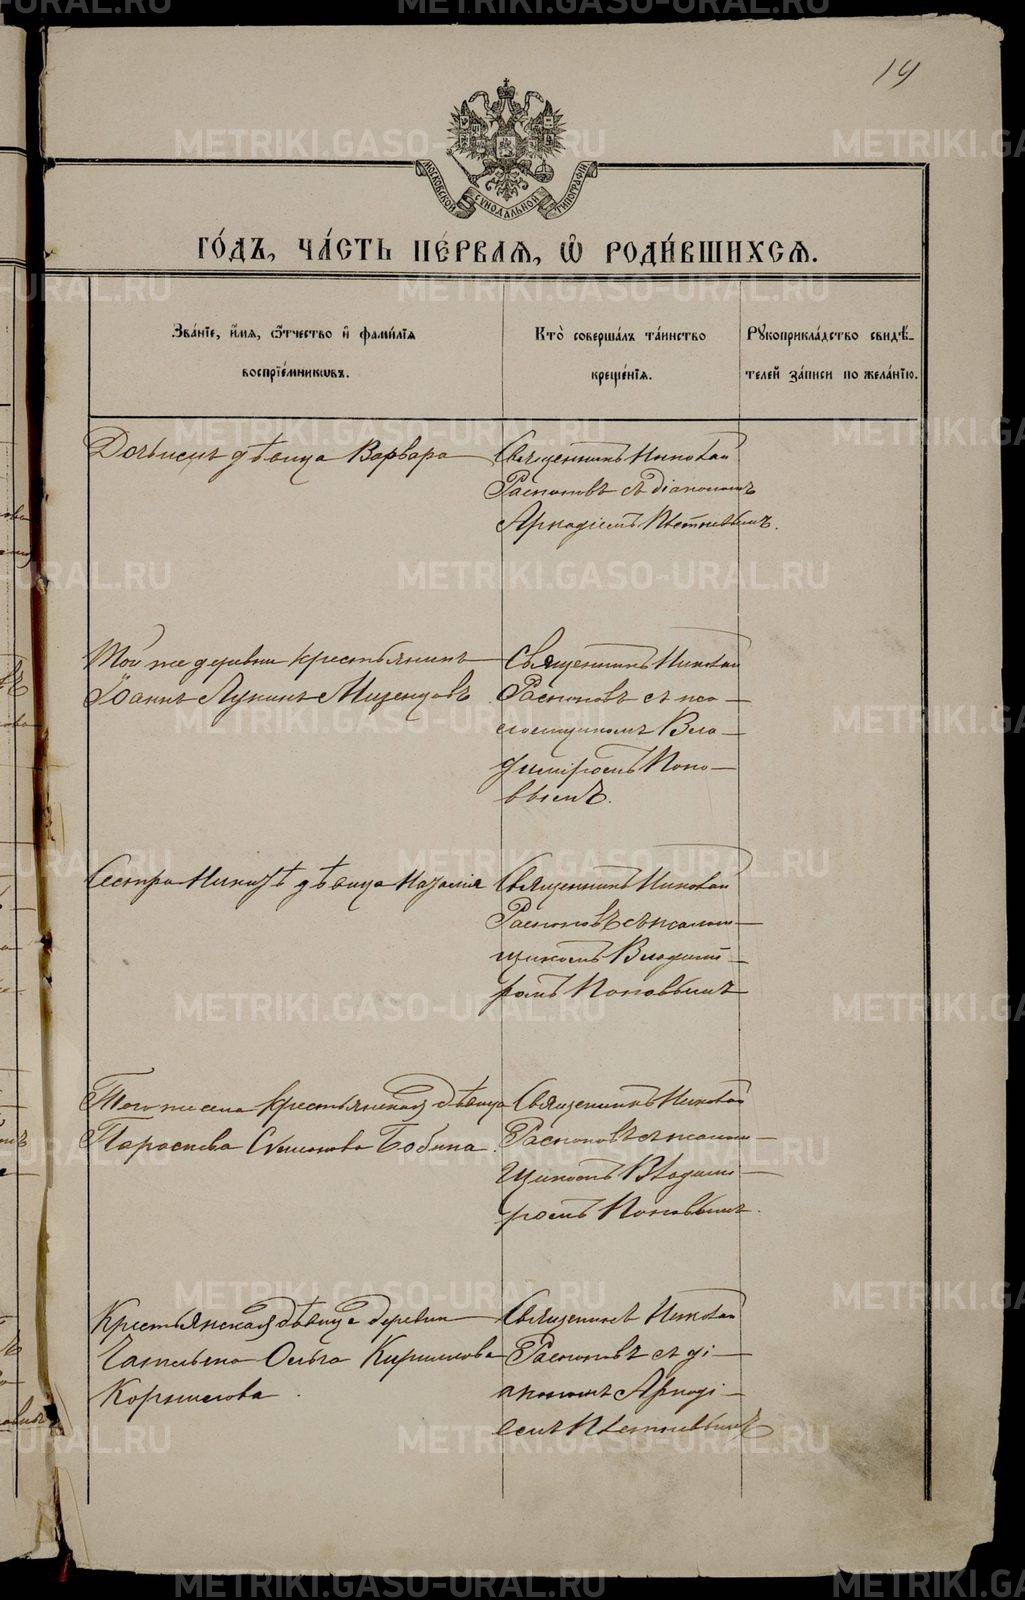 19
МОСКОВСКОЙ СѴНОДАЛЬНОЙ ТИПОГРАФІИ
ГО́ДЪ, ЧА́СТЬ ПЕ́РВАЯ, Ѽ РОДИ́ВШИХСЯ.
Зва́нїе, и҆́мѧ, ѻ҆́тчество и҆ фами́лїѧ
воспрїе́мникѡвъ.
Кто̀ соверша́лъ та́инство
креще́нїѧ.
Рꙋкоприкла́дство свидѣ́-
телей за́писи по жела́нїю.
дѣвица Варвара
Священникъ Николай
Распоповъ съ діакономъ
Аркадіемъ
Той же деревни крестьянинъ
Іоаннъ Лукинъ
Священникъ Николай
Распоповъ съ псаломщикомъ Вла-
диміромъ Попо-
вымъ.
Сестра дѣвица
Священникъ Николай
Распоповъ съ псалом-
щикомъ Владимі-
ромъ Поповымъ
Того же села крестьянская дѣвица
Параскева Симонова Бобина.
Священникъ Николай
Распоповъ съ псалом-
щикомъ Владимі-
ромъ Поповымъ.
Крестьянская дѣвица деревни
Ольга Кириллова
Корнилова
Священникъ Николай
Распоповъ съ ді-
акономъ Аркаді-
емъ
METRIKI.GASO-URAL.RU